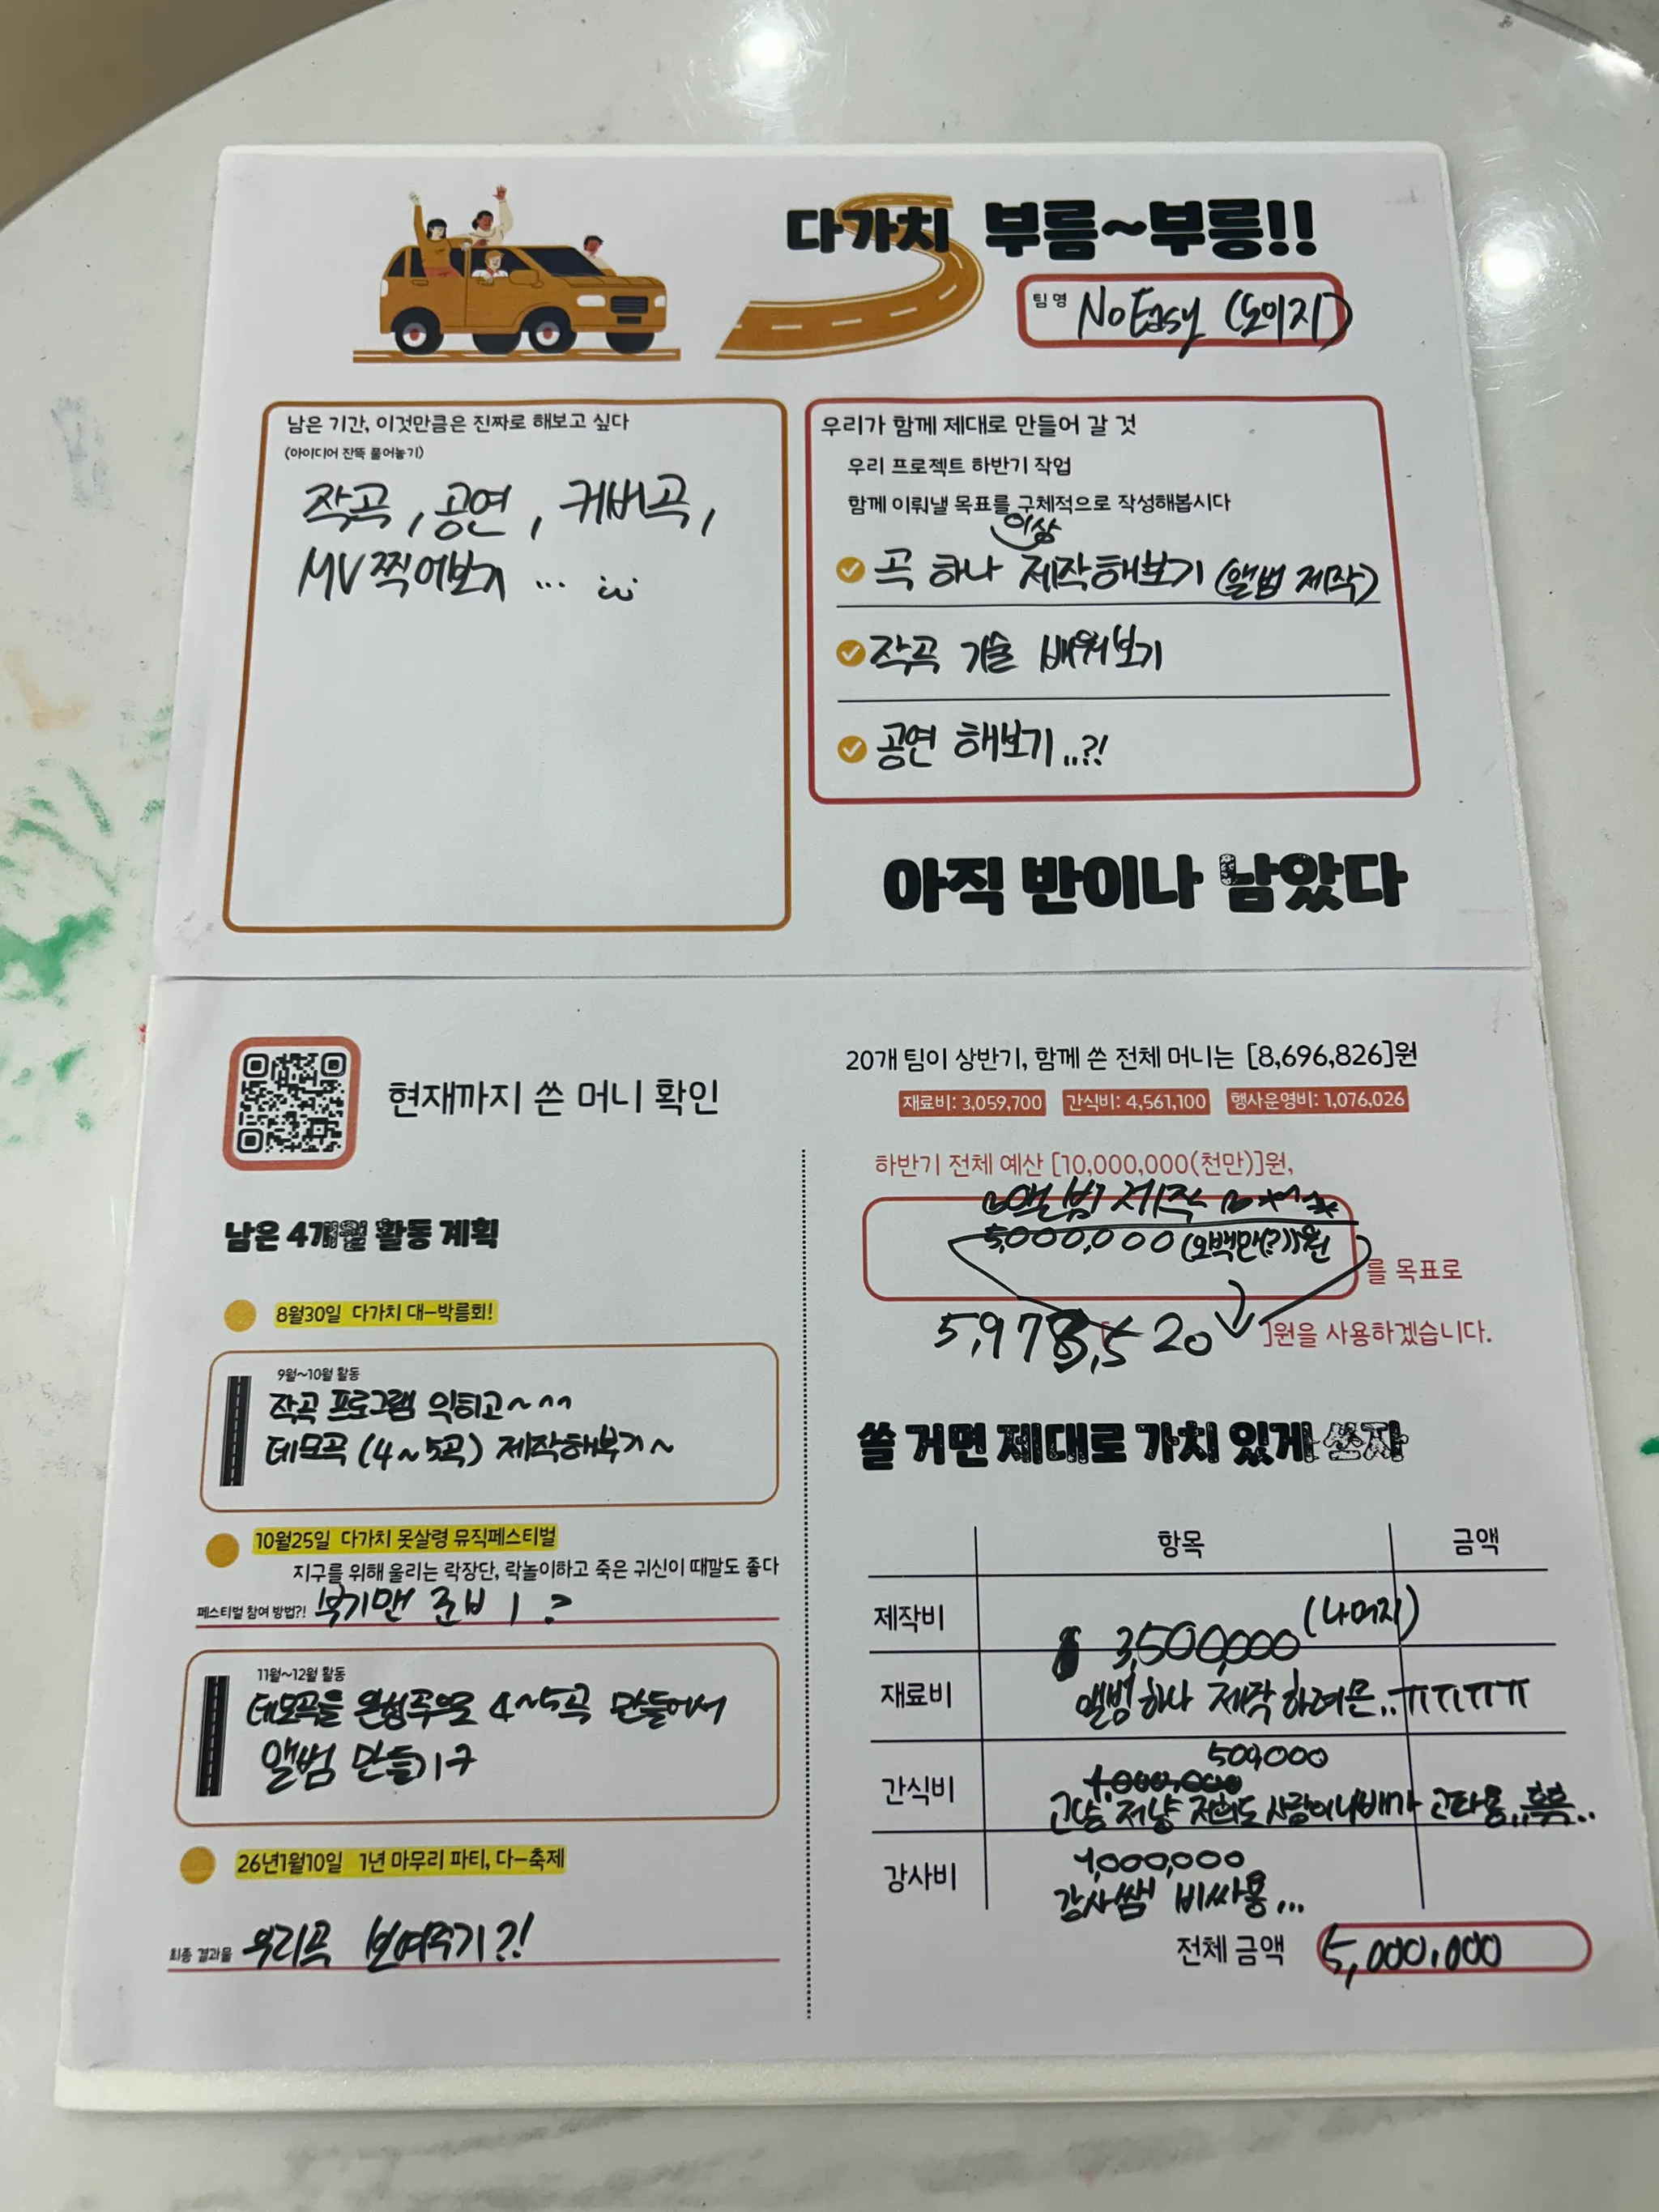 다가치 부릉~부릉!!
팀 명 NoEasy (노이지)
남은 기간, 이것만큼은 진짜로 해보고 싶다
(아이디어 잔뜩 풀어놓기)
작곡, 공연, 커버곡,
MV 찍어보기 ...
우리가 함께 제대로 만들어 갈 것
우리 프로젝트 하반기 작업
함께 이뤄낼 목표를 구체적으로 작성해봅시다
이상
곡 하나 제작해보기 (앨범 제작)
작곡 기술 배워보기
공연 해보기..?!
아직 반이나 남았다
현재까지 쓴 머니 확인
남은 4개월 활동 계획
8월30일 다가치 대-박름회!
9월~10월 활동
작곡 프로그램 익히고~^^
데모곡 (4~5곡) 제작해보기~
10월25일 다가치 못살령 뮤직페스티벌
지구를 위해 울리는 락장단, 락놀이하고 죽은 귀신이 때깔도 좋다
페스티벌 참여 방법?! 부기맨 준비
11월~12월 활동
데모곡을 완성쪽으로 4~5곡 만들어서
앨범 만들기
26년1월10일 1년 마무리 파티, 다-축제
최종 결과물 우리곡 보여주기?!
20개 팀이 상반기, 함께 쓴 전체 머니는 [8,696,826]원
재료비: 3,059,700 간식비: 4,561,100 행사운영비: 1,076,026
하반기 전체 예산 [10,000,000(천만)]원,
앨범 제작
5,000,000 (오백만(?))원
를 목표로
]원을 사용하겠습니다.
쓸 거면 제대로 가치 있게 쓰자
항목 금액
제작비 3,500,000 (나머지)
재료비 앨범하나 제작 하려면..ㅠㅠㅠㅠ
500,000
간식비 1,000,000
고냥 저냥 저희도 사람이니 배가 고파용,,흑흑..
1,000,000
강사비 강사쌤 비싸용...
전체 금액 5,000,000